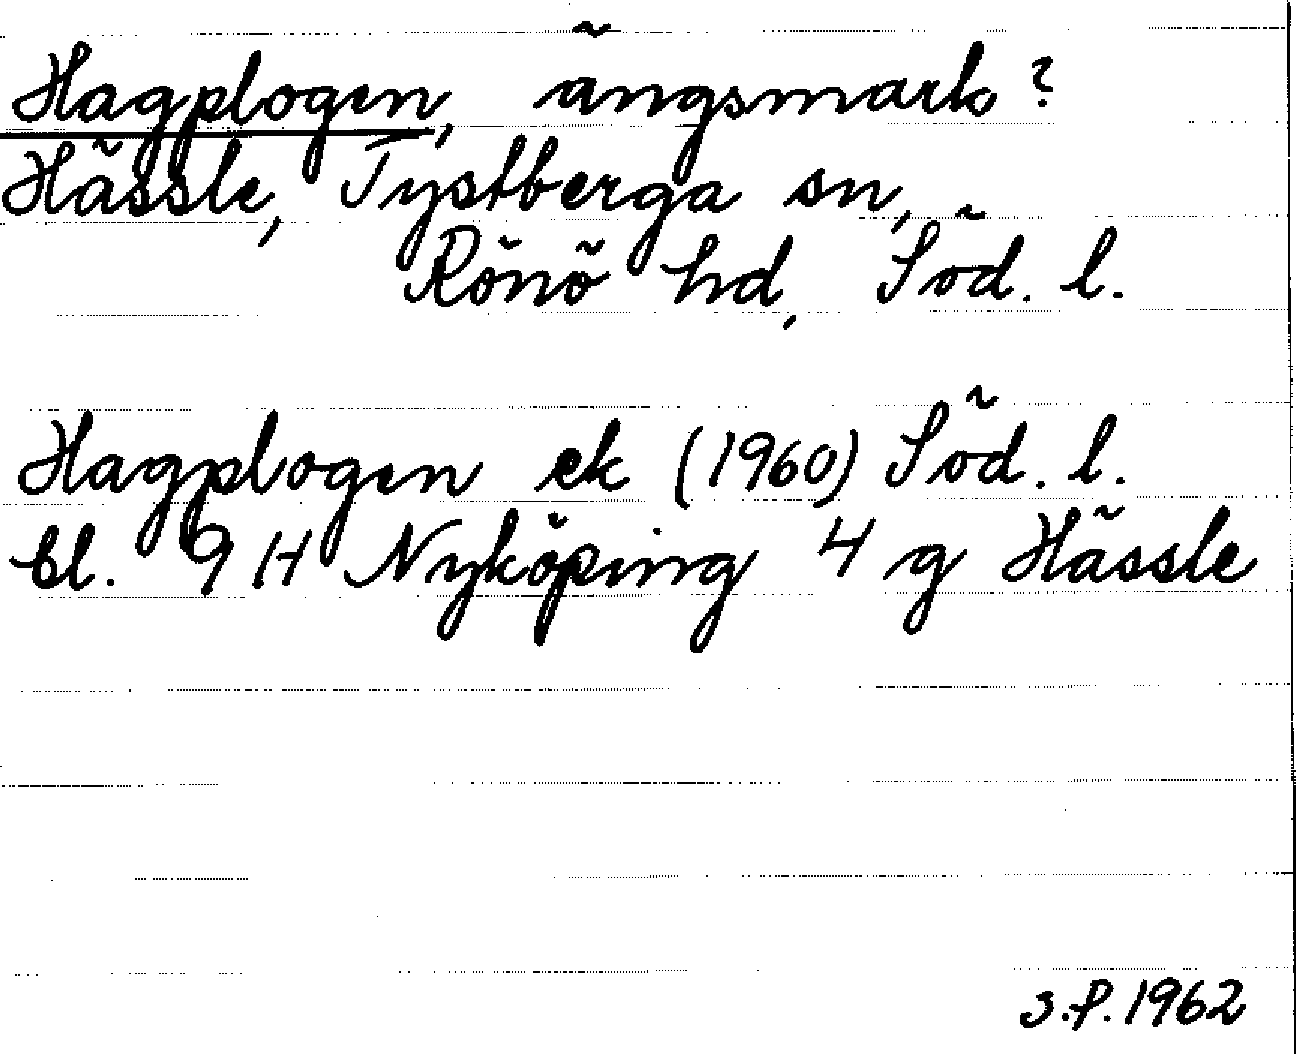 Hagplogen, ängsmark?
Hässle, Tystberga sn,
Rönö hd, Söd. l.
Hagplogen ek (1960) Söd. l.
bl. 9 H Nyköping 4 g Hässle
s.f. 1962